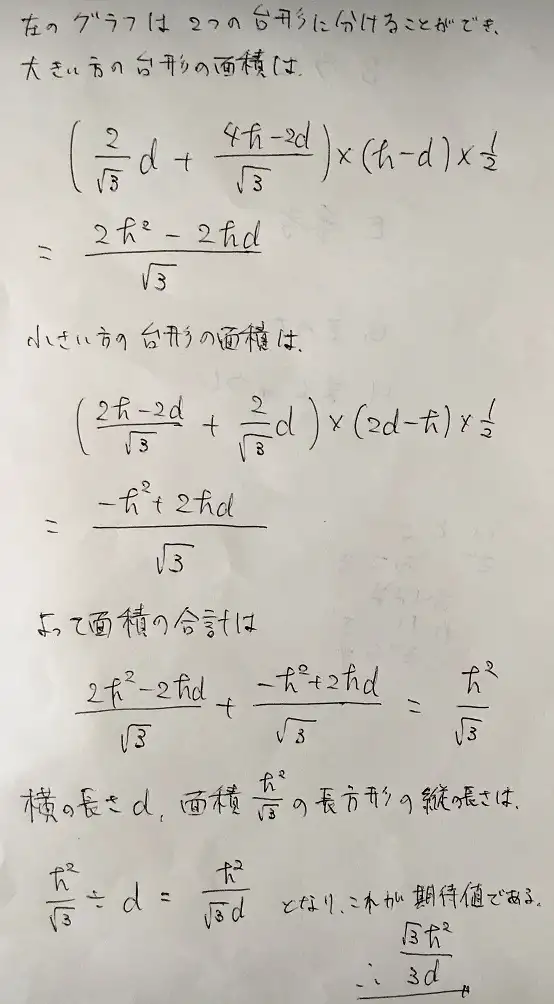 左のグラフは2つの台形に分けることができ、
大きい方の台形の面積は、
(2/√3 d + (4ℏ-2d)/√3) × (ℏ-d) × 1/2
= (2ℏ² - 2ℏd)/√3
小さい方の台形の面積は、
((2ℏ-2d)/√3 + 2/√3 d) × (2d-ℏ) × 1/2
= (-ℏ²+2ℏd)/√3
よって面積の合計は
(2ℏ²-2ℏd)/√3 + (-ℏ²+2ℏd)/√3 = ℏ²/√3
横の長さd、面積 ℏ²/√3 の長方形の縦の長さは、
ℏ²/√3 ÷ d = ℏ²/√3d となり、これが期待値である。
∴ √3ℏ²/3d 〃